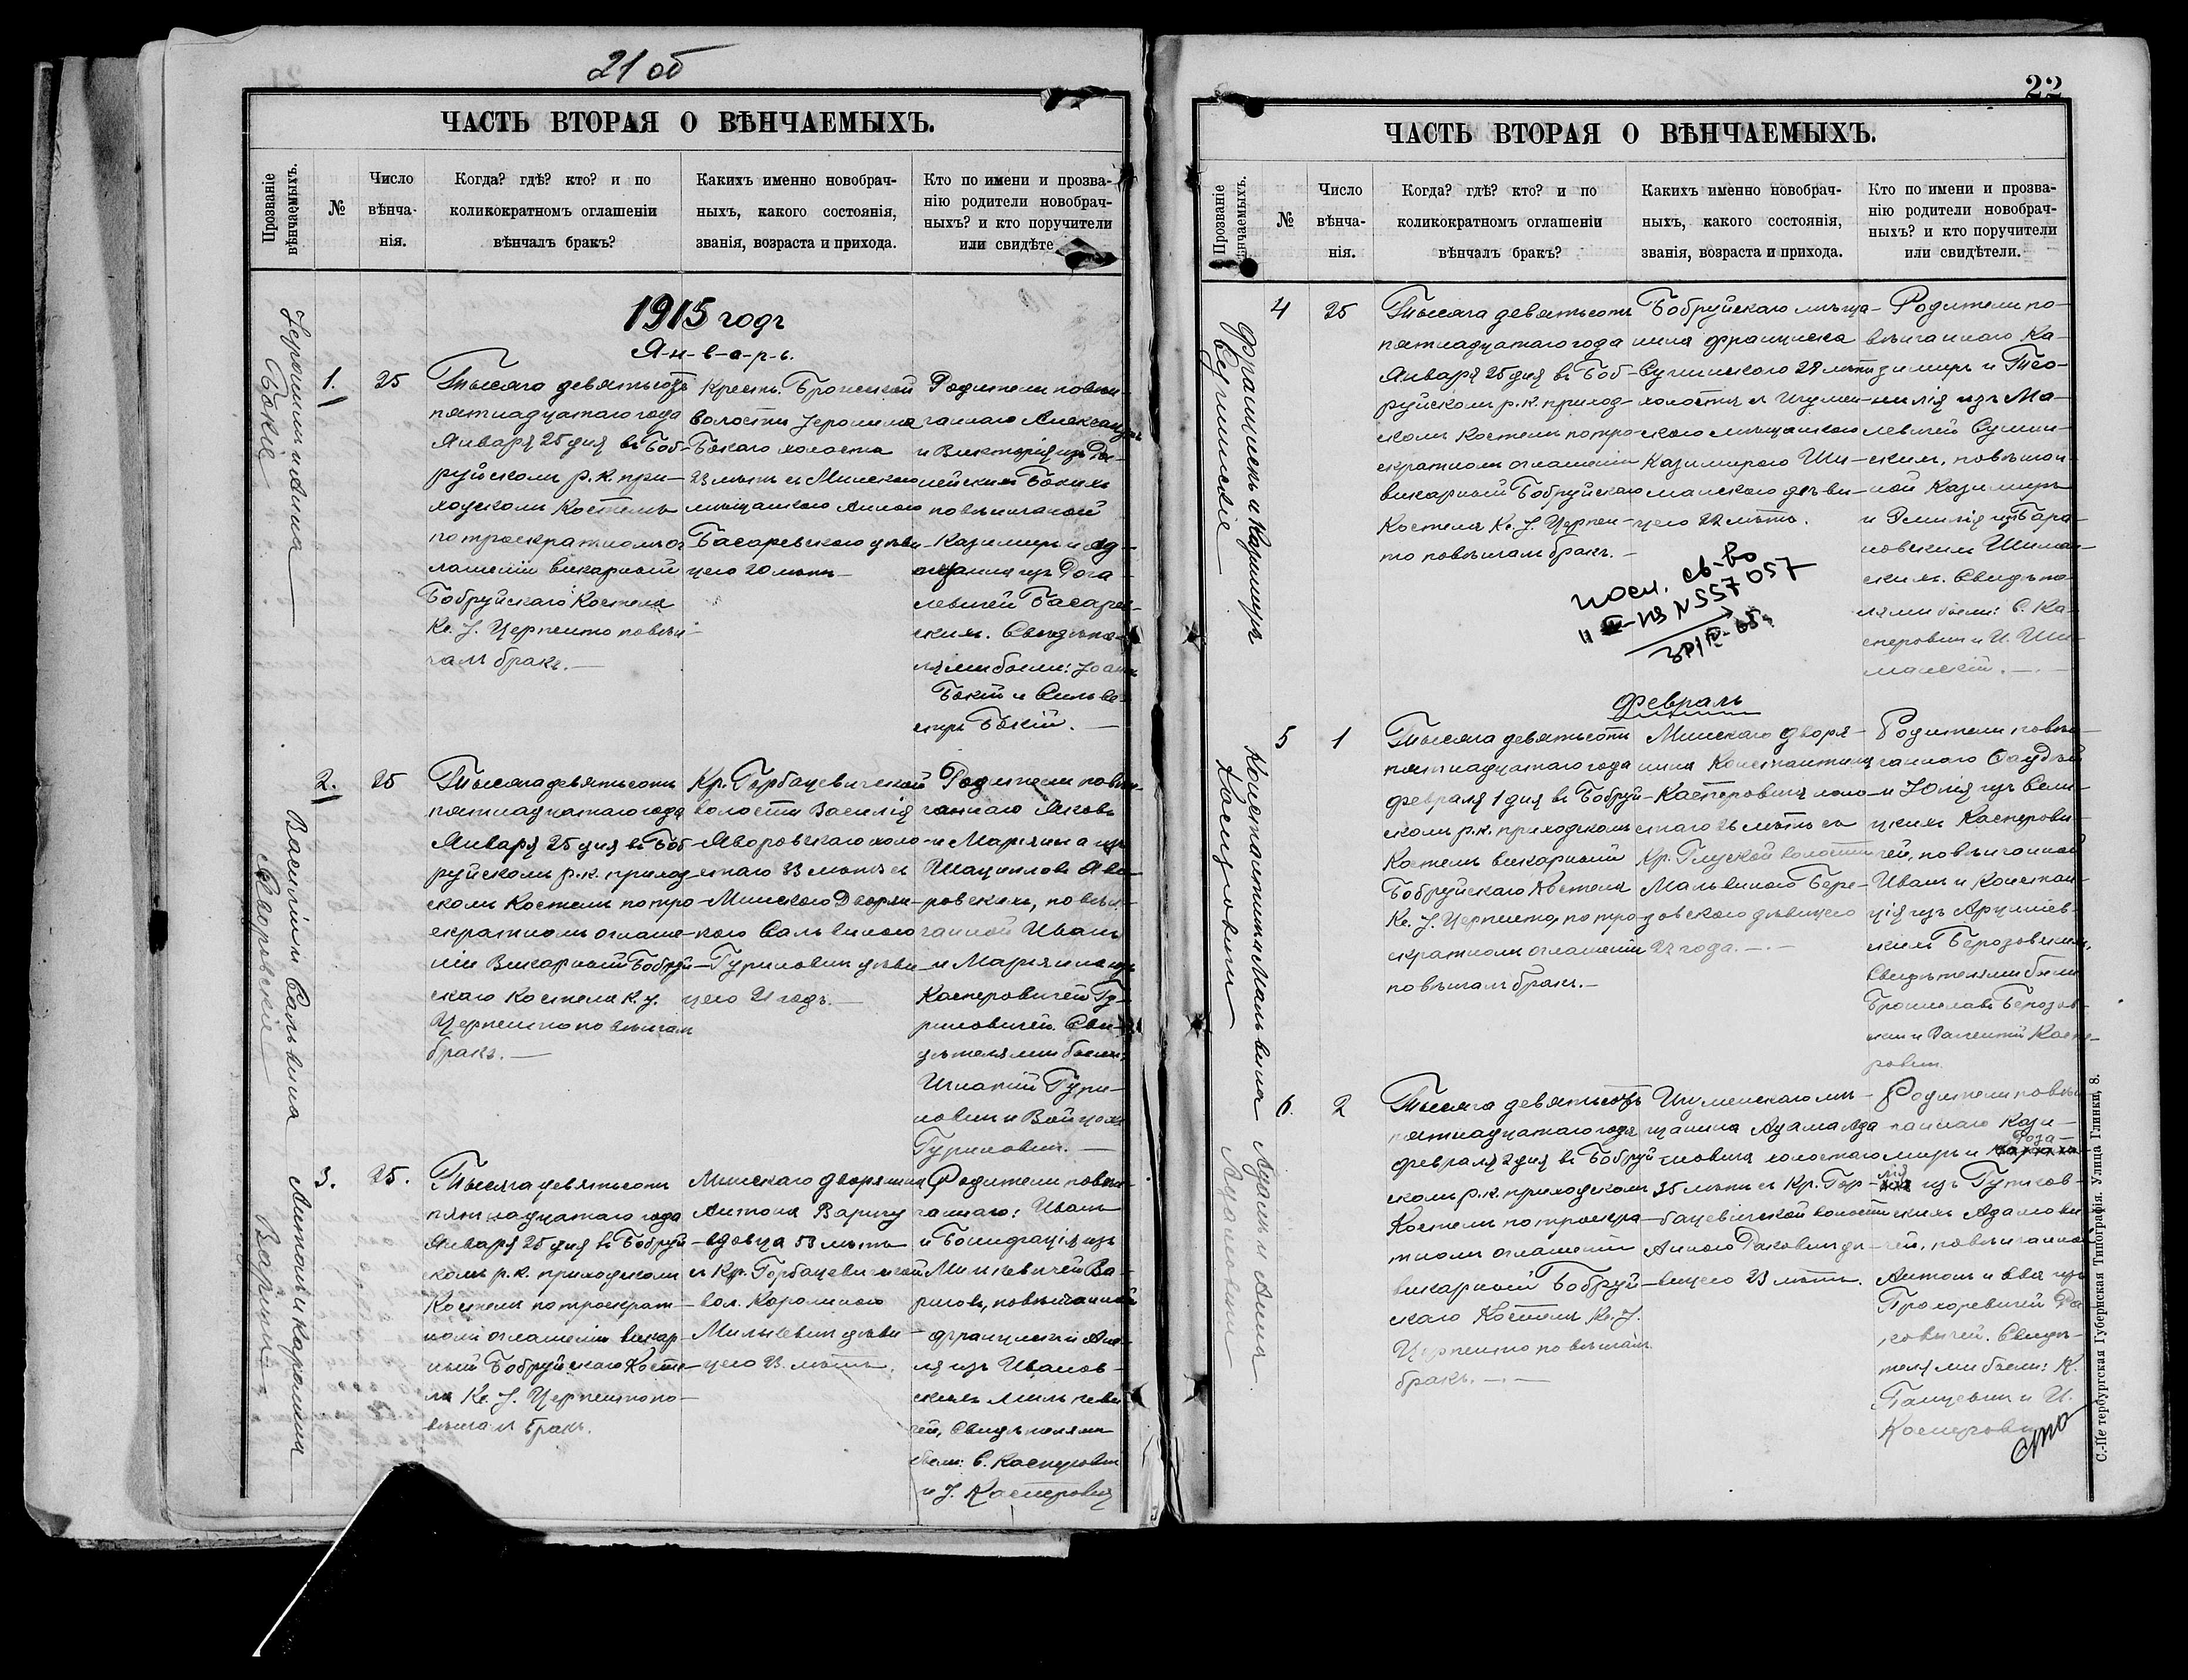 21 об
ЧАСТЬ ВТОРАЯ О ВѢНЧАЕМЫХЪ.
Прозваніе
вѣнчаемыхъ.
№
Число
вѣнча-
нія.
Когда? гдѣ? кто? и по
коликократномъ оглашеніи
вѣнчалъ бракъ?
Какихъ именно новобрач-
ныхъ, какого состоянія,
званія, возраста и прихода.
Кто по имени и прозва-
нію родители новобрач-
ныхъ? и кто поручители
или свидѣте
1915 годъ
Я-н-в-а-р-ь.
Іеронимъ и Анна
Бокіе
1.
25
Тысяча девятьсотъ
пятнадцатаго года
Января 25 дня въ Боб-
руйскомъ р. к. при-
ходскомъ Костелѣ
по троекратномъ ог
лашеніи викарный
Бобруйскаго Костела
Кс. І. Церпенто повѣн-
чалъ бракъ.
Крест. Брожской
волости Іеронима
Бокаго холоста
23 лѣтъ съ Минскою
мѣщанкою Анною
Басаревскою дѣви
цею 20 лѣтъ
Родители повѣн-
чаннаго Александръ
и Викторія изъ
Бокихъ
повѣнчаной
Казимиръ и
изъ Рога
левичей Басарев-
скихъ. Свидѣте-
лями были: Іоан
Бокій и Сильве-
стръ Бокій.
Василій и Сальвина
Яворовскіе
2.
25
Тысяча девятьсотъ
пятнадцатаго года
Января 25 дня въ Боб-
руйскомъ р. к. приход
скомъ Костелѣ по тро
екратномъ оглаше-
ніи Викарный Бобруй-
скаго Костела К. І.
Церпенто повѣнчалъ
бракъ.
Кр. Горбацевичской
волости Василія
Яворовскаго холо-
стаго 33 лѣтъ съ
Минскою Дворян-
кою Сальвиною
Гуринович дѣви-
цею 21 годъ.
Родители повѣн-
чаннаго Яковъ
и Маріянна изъ
Шациловъ Яво-
ровскихъ, повѣн-
чанной Иванъ
и Маріянна изъ
Касперовичей Гу-
риновичей. Сви-
дѣтелями были:
Игнатій Гури-
новичъ и Войцехъ
Гуриновичъ.
Антонъ и Каролина
Варичи
3.
25.
Тысяча девятьсотъ
пятнадцатаго года
Января 25 дня въ Бобруй
скомъ р. к. приходскомъ
Костелѣ по троекрат-
номъ оглашеніи викар-
ный Бобруйскаго Косте-
ла Кс. І. Церпенто по-
вѣнчалъ бракъ.
Минскаго дворянина
Антона Варичу
вдовца 53 лѣтъ
съ Кр. Горбацевичской
вол. Каролиною
Милькевич дѣви-
цею 23 лѣтъ.
Родители повѣн-
чаннаго: Иванъ
и Бонифація изъ
Минкевичей Ва-
ричовъ, повѣнчанной
Францискъ и
изъ Иванов-
скихъ Милькеви
чей, Свидѣтелями
были: С. Касперович
и І. Касперович
22
ЧАСТЬ ВТОРАЯ О ВѢНЧАЕМЫХЪ.
Прозваніе
вѣнчаемыхъ.
№
Число
вѣнча-
нія.
Когда? гдѣ? кто? и по
коликократномъ оглашеніи
вѣнчалъ бракъ?
Какихъ именно новобрач-
ныхъ, какого состоянія,
званія, возраста и прихода.
Кто по имени и прозва-
нію родители новобрач-
ныхъ? и кто поручители
или свидѣтели.
Францискъ и Казимира
Сушинскіе
4
25
Тысяча девятьсотъ
пятнадцатаго года
Января 25 дня въ Боб-
руйскомъ р. к. приход-
скомъ Костелѣ по тро-
екратномъ оглашеніи
викарный Бобруйскаго
Костела Кс. І. Церпен-
то повѣнчалъ бракъ.
Бобруйскаго мѣща-
нина Франциска
Сушинскаго 28 лѣтъ
холостъ съ Игумен-
скою мѣщанкою
Казимирою Ши-
манскою дѣви-
цею 22 лѣтъ.
Родители по-
вѣнчаннаго Ка-
зимиръ и Тео-
филія изъ Ма-
левичей Сушин-
скихъ, повѣнчан-
ной Казимиръ
и Эмилія изъ Бара-
новскихъ Шиман
скихъ. Свидѣте
лями были: С. Ка-
сперович и И. Ши-
манскій.
св-во
N 557057
Февраль
Константинъ и Мальвина
Касперовичи
5
1
Тысяча девятьсотъ
пятнадцатаго года
Февраля 1 дня въ Бобруй-
скомъ р.к. приходскомъ
Костелѣ викарный
Бобруйскаго Костела
Кс. І. Церпенто, по тро-
екратномъ оглашеніи
повѣнчалъ бракъ.
Минскаго дворя-
нина Константина
Касперовича холо-
стаго 26 лѣтъ съ
Кр. Глуской волости
Мальвиною Бере-
зовскою дѣвицею
22 года.
Родители повѣн-
чаннаго
и Юлія изъ Сели-
цкихъ Касперови-
чей, повѣнчанной
Иванъ и Констан-
ція изъ
Березовскихъ.
Свидѣтелями были
Брониславъ Березов-
скій и Валентій Каспе-
ровичъ
Адамъ и Анна
Адамовичи
6.
2
Тысяча девятьсотъ
пятнадцатаго года
Февраля 2 дня въ Бобруй
скомъ р.к. приходскомъ
Костелѣ по троекра-
тномъ оглашеніи
викарный Бобруй-
скаго Костела Кс. І.
Церпенто повѣнчалъ
бракъ.
Игуменскаго мѣ-
щанина Адама Ада
мовича холостаго
35 лѣтъ съ Кр. Гор-
бацевичской волости
Анною Ракович дѣ-
вицею 23 лѣтъ.
Родители повѣн
чаннаго Кази-
миръ и Роза-
лія изъ Гутков-
скихъ Адамови
чей, повѣнчанной
Антонъ и Ева изъ
Прохоревичей Ра
ковичей. Свидѣ-
телями были: К.
Ганцевич и И.
Касперович
С.-Петербургская Губернская Типографія. Улица Глинки, 8.